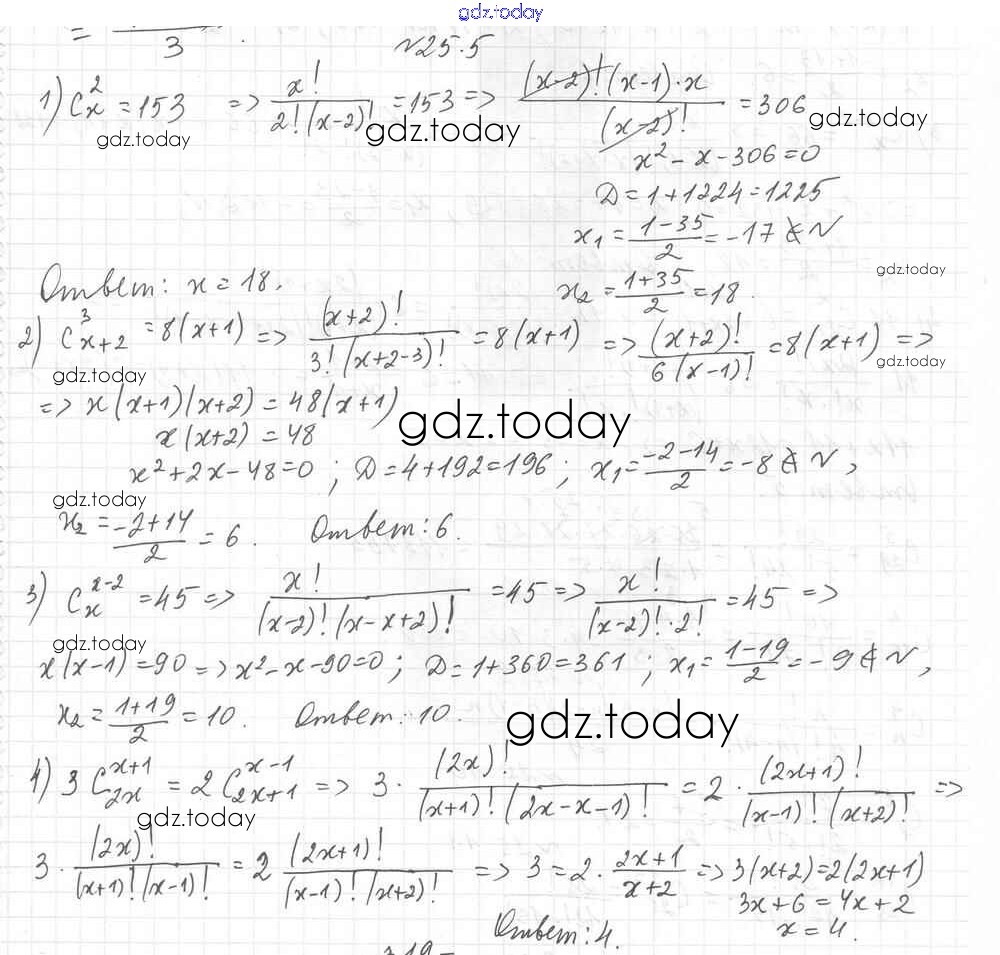 gdz.today
= ― 3 .
№25.5
1) C_x^2 = 153 => x! / 2!(x-2)! = 153 => (x-2)!(x-1)·x / (x-2)! = 306
gdz.today gdz.today gdz.today
x² - x - 306 = 0
D = 1 + 1224 = 1225
x₁ = (1-35)/2 = -17 ∉ N
Ответ: x = 18.
gdz.today
x₂ = (1+35)/2 = 18.
2) C_{x+2}^3 = 8(x+1) => (x+2)! / 3!(x+2-3)! = 8(x+1) => (x+2)! / 6(x-1)! = 8(x+1) =>
gdz.today gdz.today
=> x(x+1)(x+2) = 48(x+1)
gdz.today
x(x+2) = 48
x² + 2x - 48 = 0 ; D = 4 + 192 = 196 ; x₁ = (-2-14)/2 = -8 ∉ N ,
gdz.today
x₂ = (-2+14)/2 = 6. Ответ: 6.
3) C_x^{x-2} = 45 => x! / (x-2)!(x-x+2)! = 45 => x! / (x-2)!·2! = 45 =>
gdz.today
x(x-1) = 90 => x² - x - 90 = 0 ; D = 1 + 360 = 361 ; x₁ = (1-19)/2 = -9 ∉ N ,
x₂ = (1+19)/2 = 10. Ответ: 10.
gdz.today
4) 3 C_{2x}^{x+1} = 2 C_{2x+1}^{x-1} => 3 · (2x)! / (x+1)!(2x-x-1)! = 2 · (2x+1)! / (x-1)!(x+2)! =>
gdz.today
3 · (2x)! / (x+1)!(x-1)! = 2 (2x+1)! / (x-1)!(x+2)! => 3 = 2 · (2x+1)/(x+2) => 3(x+2) = 2(2x+1)
3x + 6 = 4x + 2
Ответ: 4. x = 4.